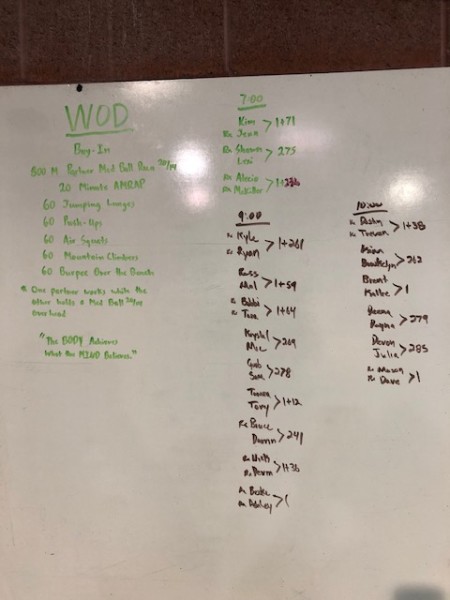 WOD
Buy-In
800 M Partner Med Ball Run 20/14
20 Minute AMRAP
60 Jumping Lunges
60 Push-Ups
60 Air Squats
60 Mountain Climbers
60 Burpee Over the
One partner works while the
other holds a Med Ball 20/14
overhead
"The BODY Achieves
What the MIND Believes."
7:00
Kim > 1+71
Rx Jenn
Rx Shawn > 275
Lexi
Rx Alexis
Rx
9:00
Rx Kyle > 1+261
Rx Ryan
Russ > 1+59
Mel
Rx Bobbi > 1+64
Rx Tara
Krystal > 269
Gab > 278
Sam
> 1+12
Tory
Rx > 241
Rx > 1+36
Rx
Rx > 1
Rx
10:00
Rx > 1+38
Rx Trevor
> 262
Brooklyn
Brant > 1
> 279
Devon > 285
Julie
Rx > 1
Rx Dave